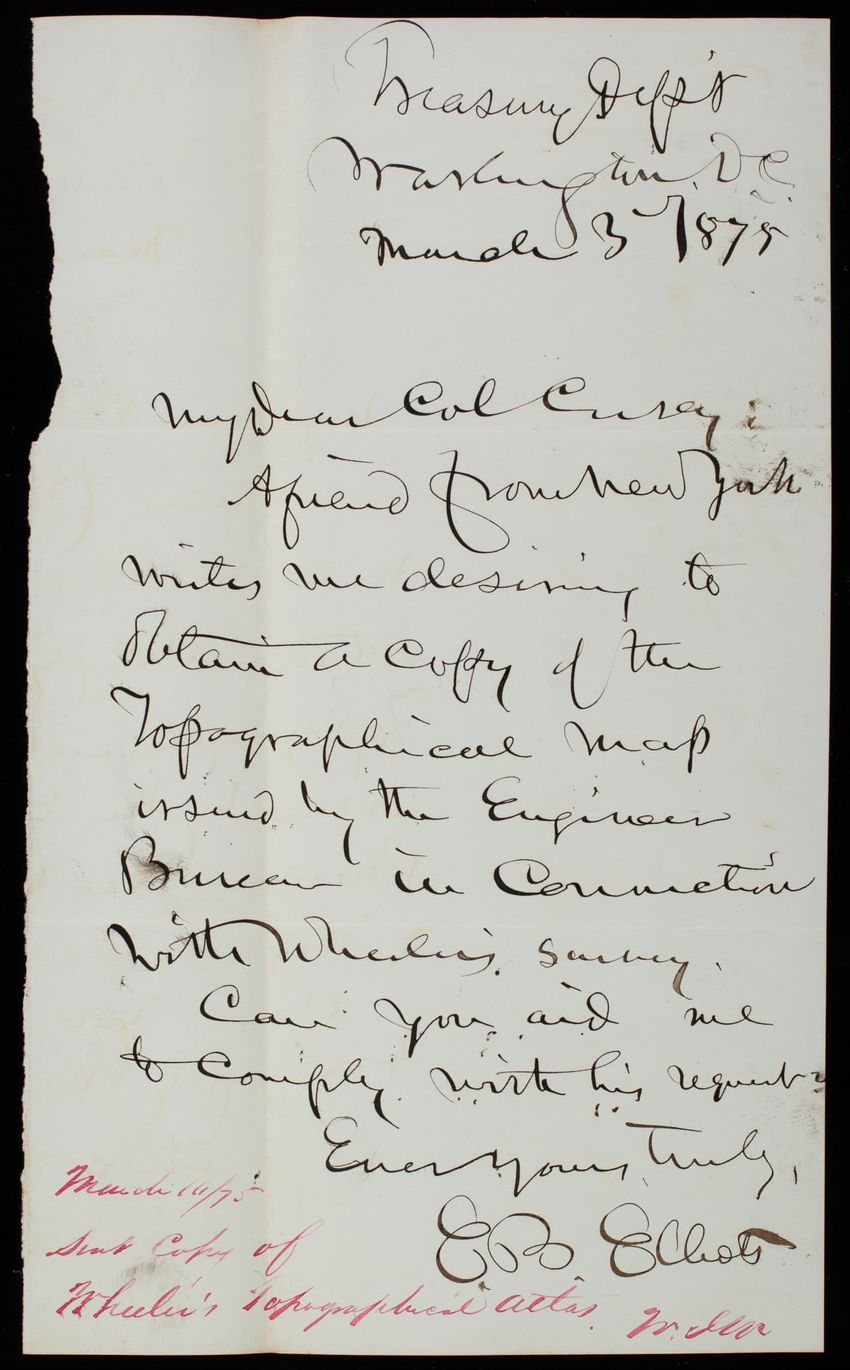 Treasury Dep't
Washington, DC
March 3 / 1875
My Dear Col Casey:
A friend from New York
writes me desiring to
obtain a copy of the
Topographical map
issued by the Engineer
Bureau in Connection
with Wheeler's survey.
Can you aid me
to comply with his request?
Ever yours truly,
E B Elliott
March 16/75
Sent Copy of
Wheeler's Topographical Atlas.